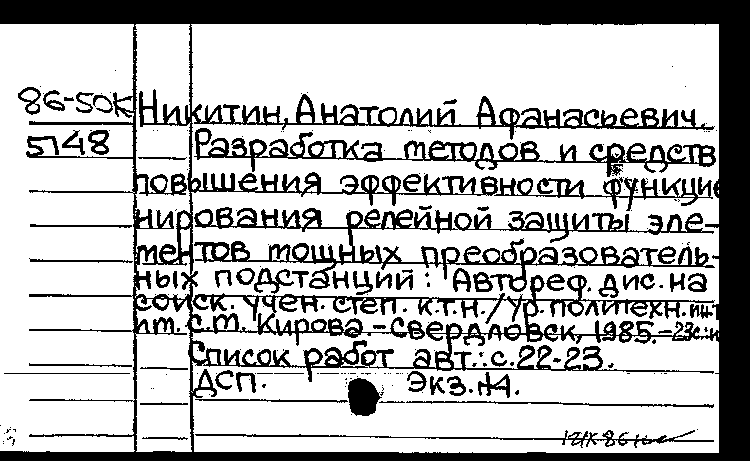 86-50К Никитин, Анатолий Афанасьевич.
5148 Разработка методов и средств
повышения эффективности функцио
нирования релейной защиты эле-
ментов мощных преобразователь-
ных подстанций: Автореф. дис. на
соиск. учен. степ. к.т.н./Ур. политехн. инт
им. С.М. Кирова.-Свердловск, 1985.-23с.:и
Список работ авт.: с.22-23.
ДСП. Экз.№4.